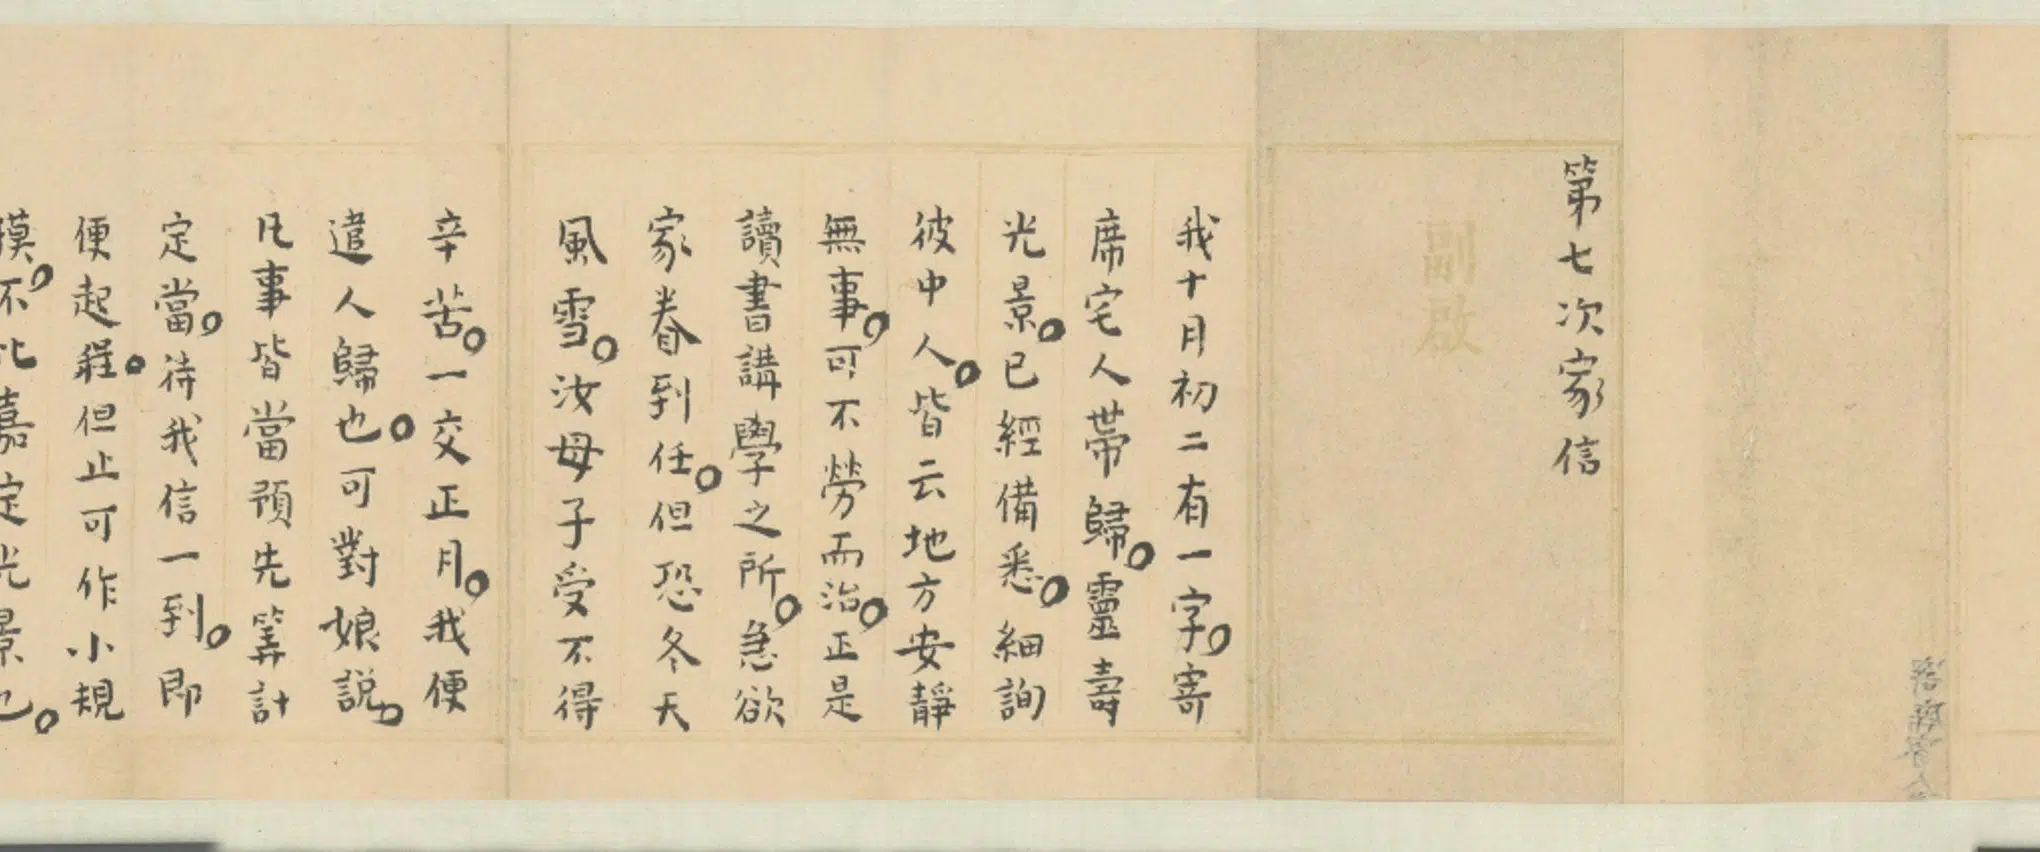 第七次家信
副啟
我十月初二有一字。寄
席宅人帶歸。靈壽
光景。已經備悉。細詢
彼中人。皆云地方安靜
無事。可不勞而治。正是
讀書講學之所。急欲
家眷到任。但恐冬天
風雪。汝母子受不得
辛苦。一交正月。我便
遣人歸也。可對娘說。
凡事皆當預先筭計
定當。待我信一到。即
便起程。但止可作小規
摸。不比嘉定光景也。